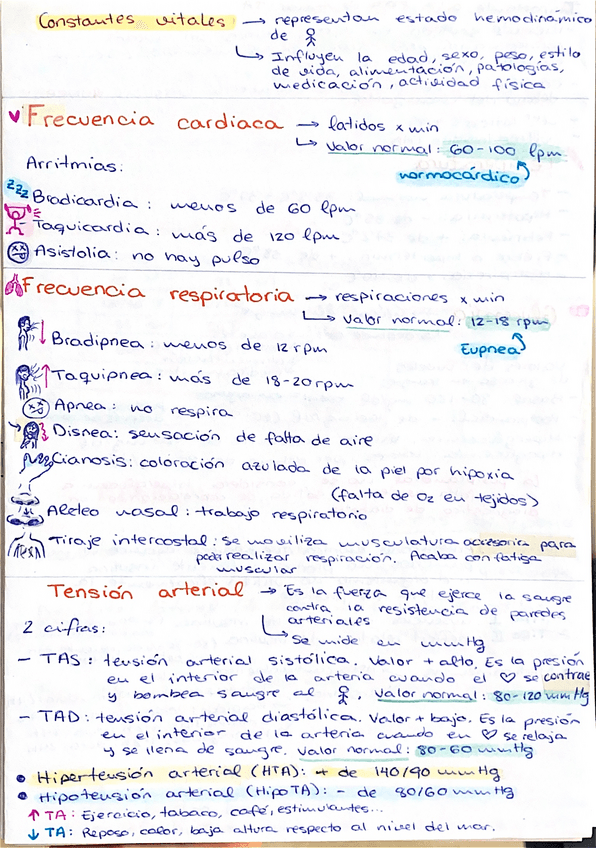 Constantes vitales → representan estado hemodinámico
de
↳ Influyen la edad, sexo, peso, estilo
de vida, alimentación, patologías,
medicación, actividad física
Frecuencia cardiaca → latidos x min
↳ Valor normal: 60-100 lpm
normocárdico
Arritmias:
zzz Bradicardia: menos de 60 lpm
Taquicardia: más de 120 lpm
Asistolia: no hay pulso
Frecuencia respiratoria → respiraciones x min
↳ Valor normal: 12-18 rpm
Eupnea
Bradipnea: menos de 12 rpm
Taquipnea: más de 18-20 rpm
Apnea: no respira
Disnea: sensación de falta de aire
Cianosis: coloración azulada de la piel por hipoxia
(falta de O2 en tejidos)
Aleteo nasal: trabajo respiratorio
Tiraje intercostal: se moviliza musculatura accesoria para
poder realizar respiración. Acaba con fatiga
muscular
Tensión arterial → Es la fuerza que ejerce la sangre
contra la resistencia de paredes
arteriales
↳ Se mide en mmHg
2 cifras:
- TAS: tensión arterial sistólica. Valor + alto. Es la presión
en el interior de la arteria cuando el ♡ se contrae
y bombea sangre al . Valor normal: 80-120 mmHg
- TAD: tensión arterial diastólica. Valor + bajo. Es la presión
en el interior de la arteria cuando en ♡ se relaja
y se llena de sangre. Valor normal: 80-60 mmHg
• Hipertensión arterial (HTA): + de 140/90 mmHg
• Hipotensión arterial (HipoTA): - de 80/60 mmHg
↑ TA: Ejercicio, tabaco, café, estimulantes...
↓ TA: Reposo, calor, baja altura respecto al nivel del mar.